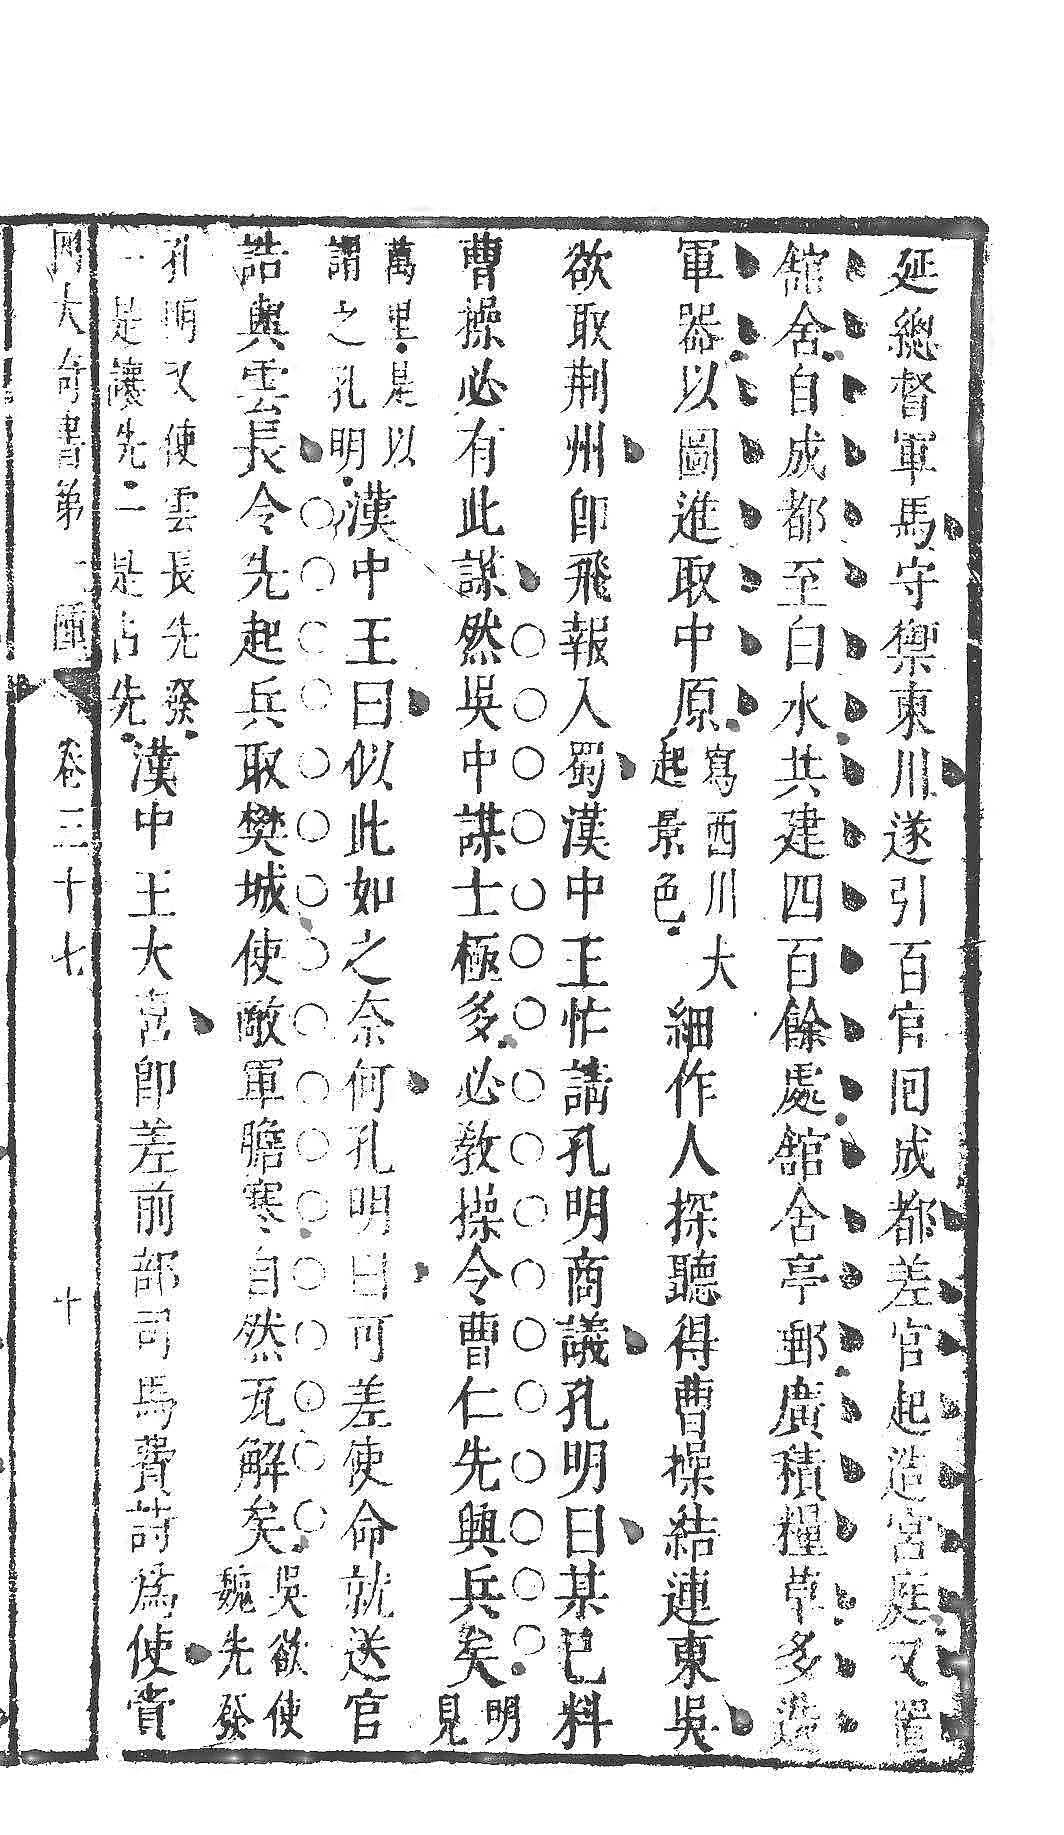 延總督軍馬守禦東川遂引百官回成都差官起造宮庭又置
館舍自成都至白水共建四百餘處館舍亭郵廣積糧草多造
軍器以圖進取中原寫西川大起景色細作人探聽得曹操結連東吳
欲取荆州即飛報入蜀漢中王忙請孔明商議孔明曰某已料
曹操必有此謀然吳中謀士極多必教操令曹仁先興兵矣明見
萬里是以謂之孔明漢中王曰似此如之奈何孔明曰可差使命就送官
誥與雲長令先起兵取樊城使敵軍膽寒自然瓦解矣吳欲使魏先發
孔明又使雲長先發一是讓先二是占先漢中王大喜即差前部司馬費詩爲使賫
四大奇書第一種 卷三十七 十